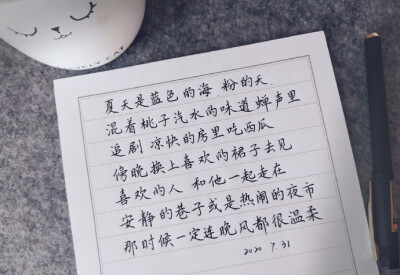 夏天是蓝色的海 粉的天
混着桃子汽水的味道 蝉声里
追剧 凉快的房里吃西瓜
傍晚换上喜欢的裙子去见
喜欢的人 和他一起走在
安静的巷子或是热闹的夜市
那时候一定连晚风都很温柔
2020 7.31